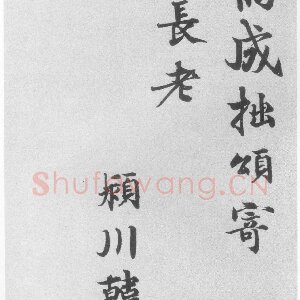 成拙頌寄
長老
潁川韓
Shufawang.CN